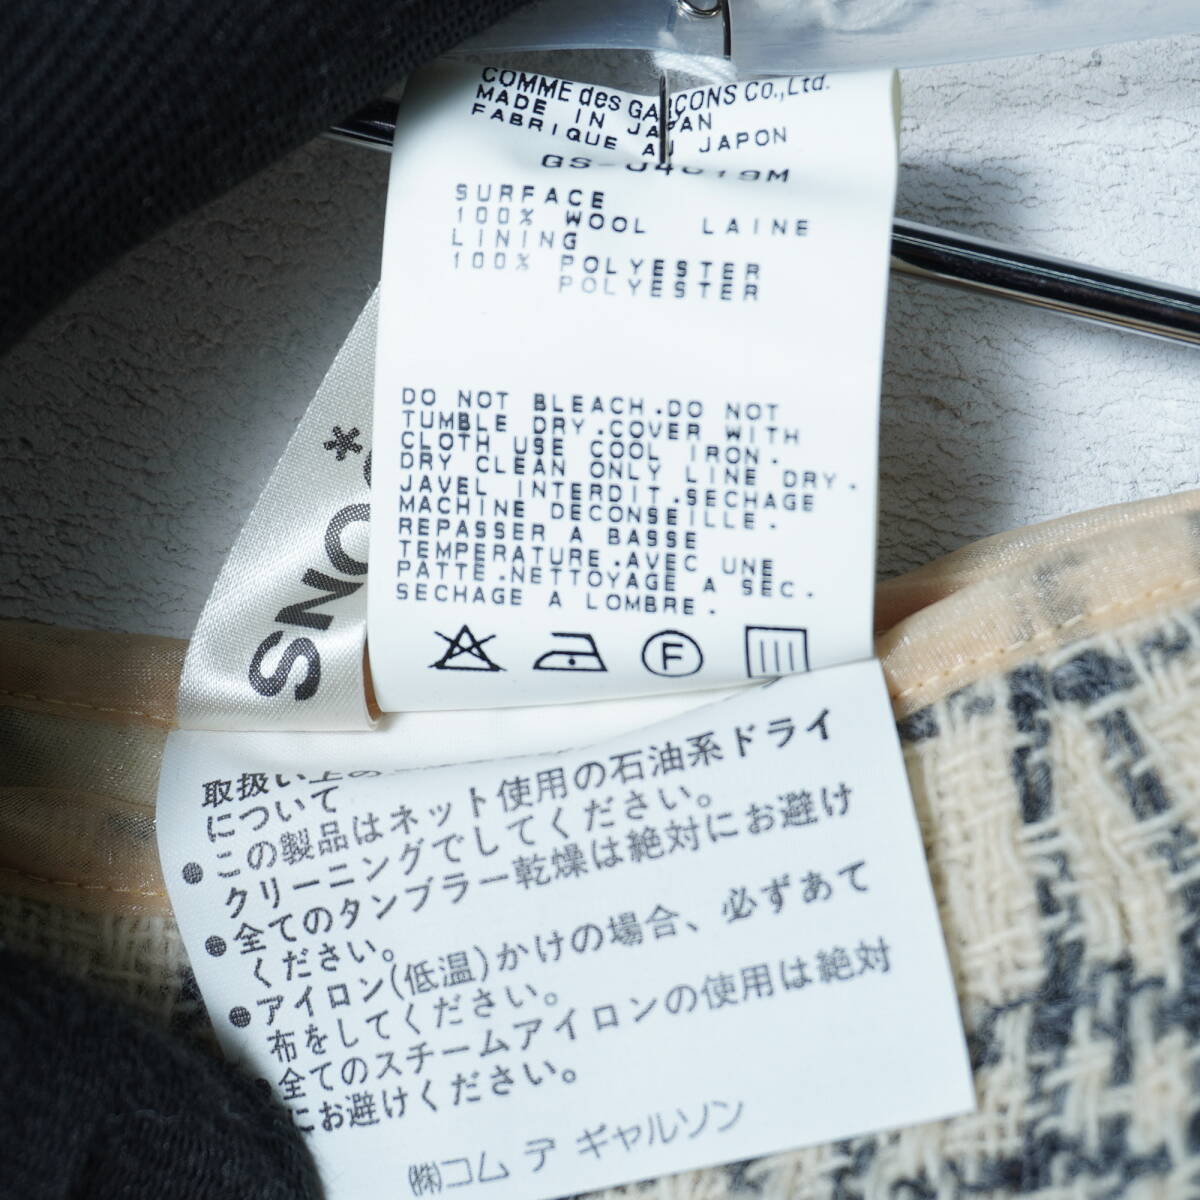 COMME des GARÇONS Co.,Ltd.
MADE IN JAPAN
FABRIQUE AU JAPON
SURFACE
100% WOOL LAINE
LINING
100% POLYESTER
POLYESTER
DO NOT BLEACH.DO NOT
TUMBLE DRY.COVER WITH
CLOTH USE COOL IRON.
DRY CLEAN ONLY LINE DRY.
JAVEL INTERDIT.SECHAGE
MACHINE DECONSEILLE.
REPASSER A BASSE
TEMPERATURE.AVEC UNE
PATTE.NETTOYAGE A SEC.
SECHAGE A LOMBRE.
F
ONS
*
取扱い上の
について
●この製品はネット使用の石油系ドライ
クリーニングでしてください。
●全てのタンブラー乾燥は絶対にお避け
ください。
●アイロン(低温)かけの場合、必ずあて
布をしてください。
全てのスチームアイロンの使用は絶対
にお避けください。
㈱コム デ ギャルソン